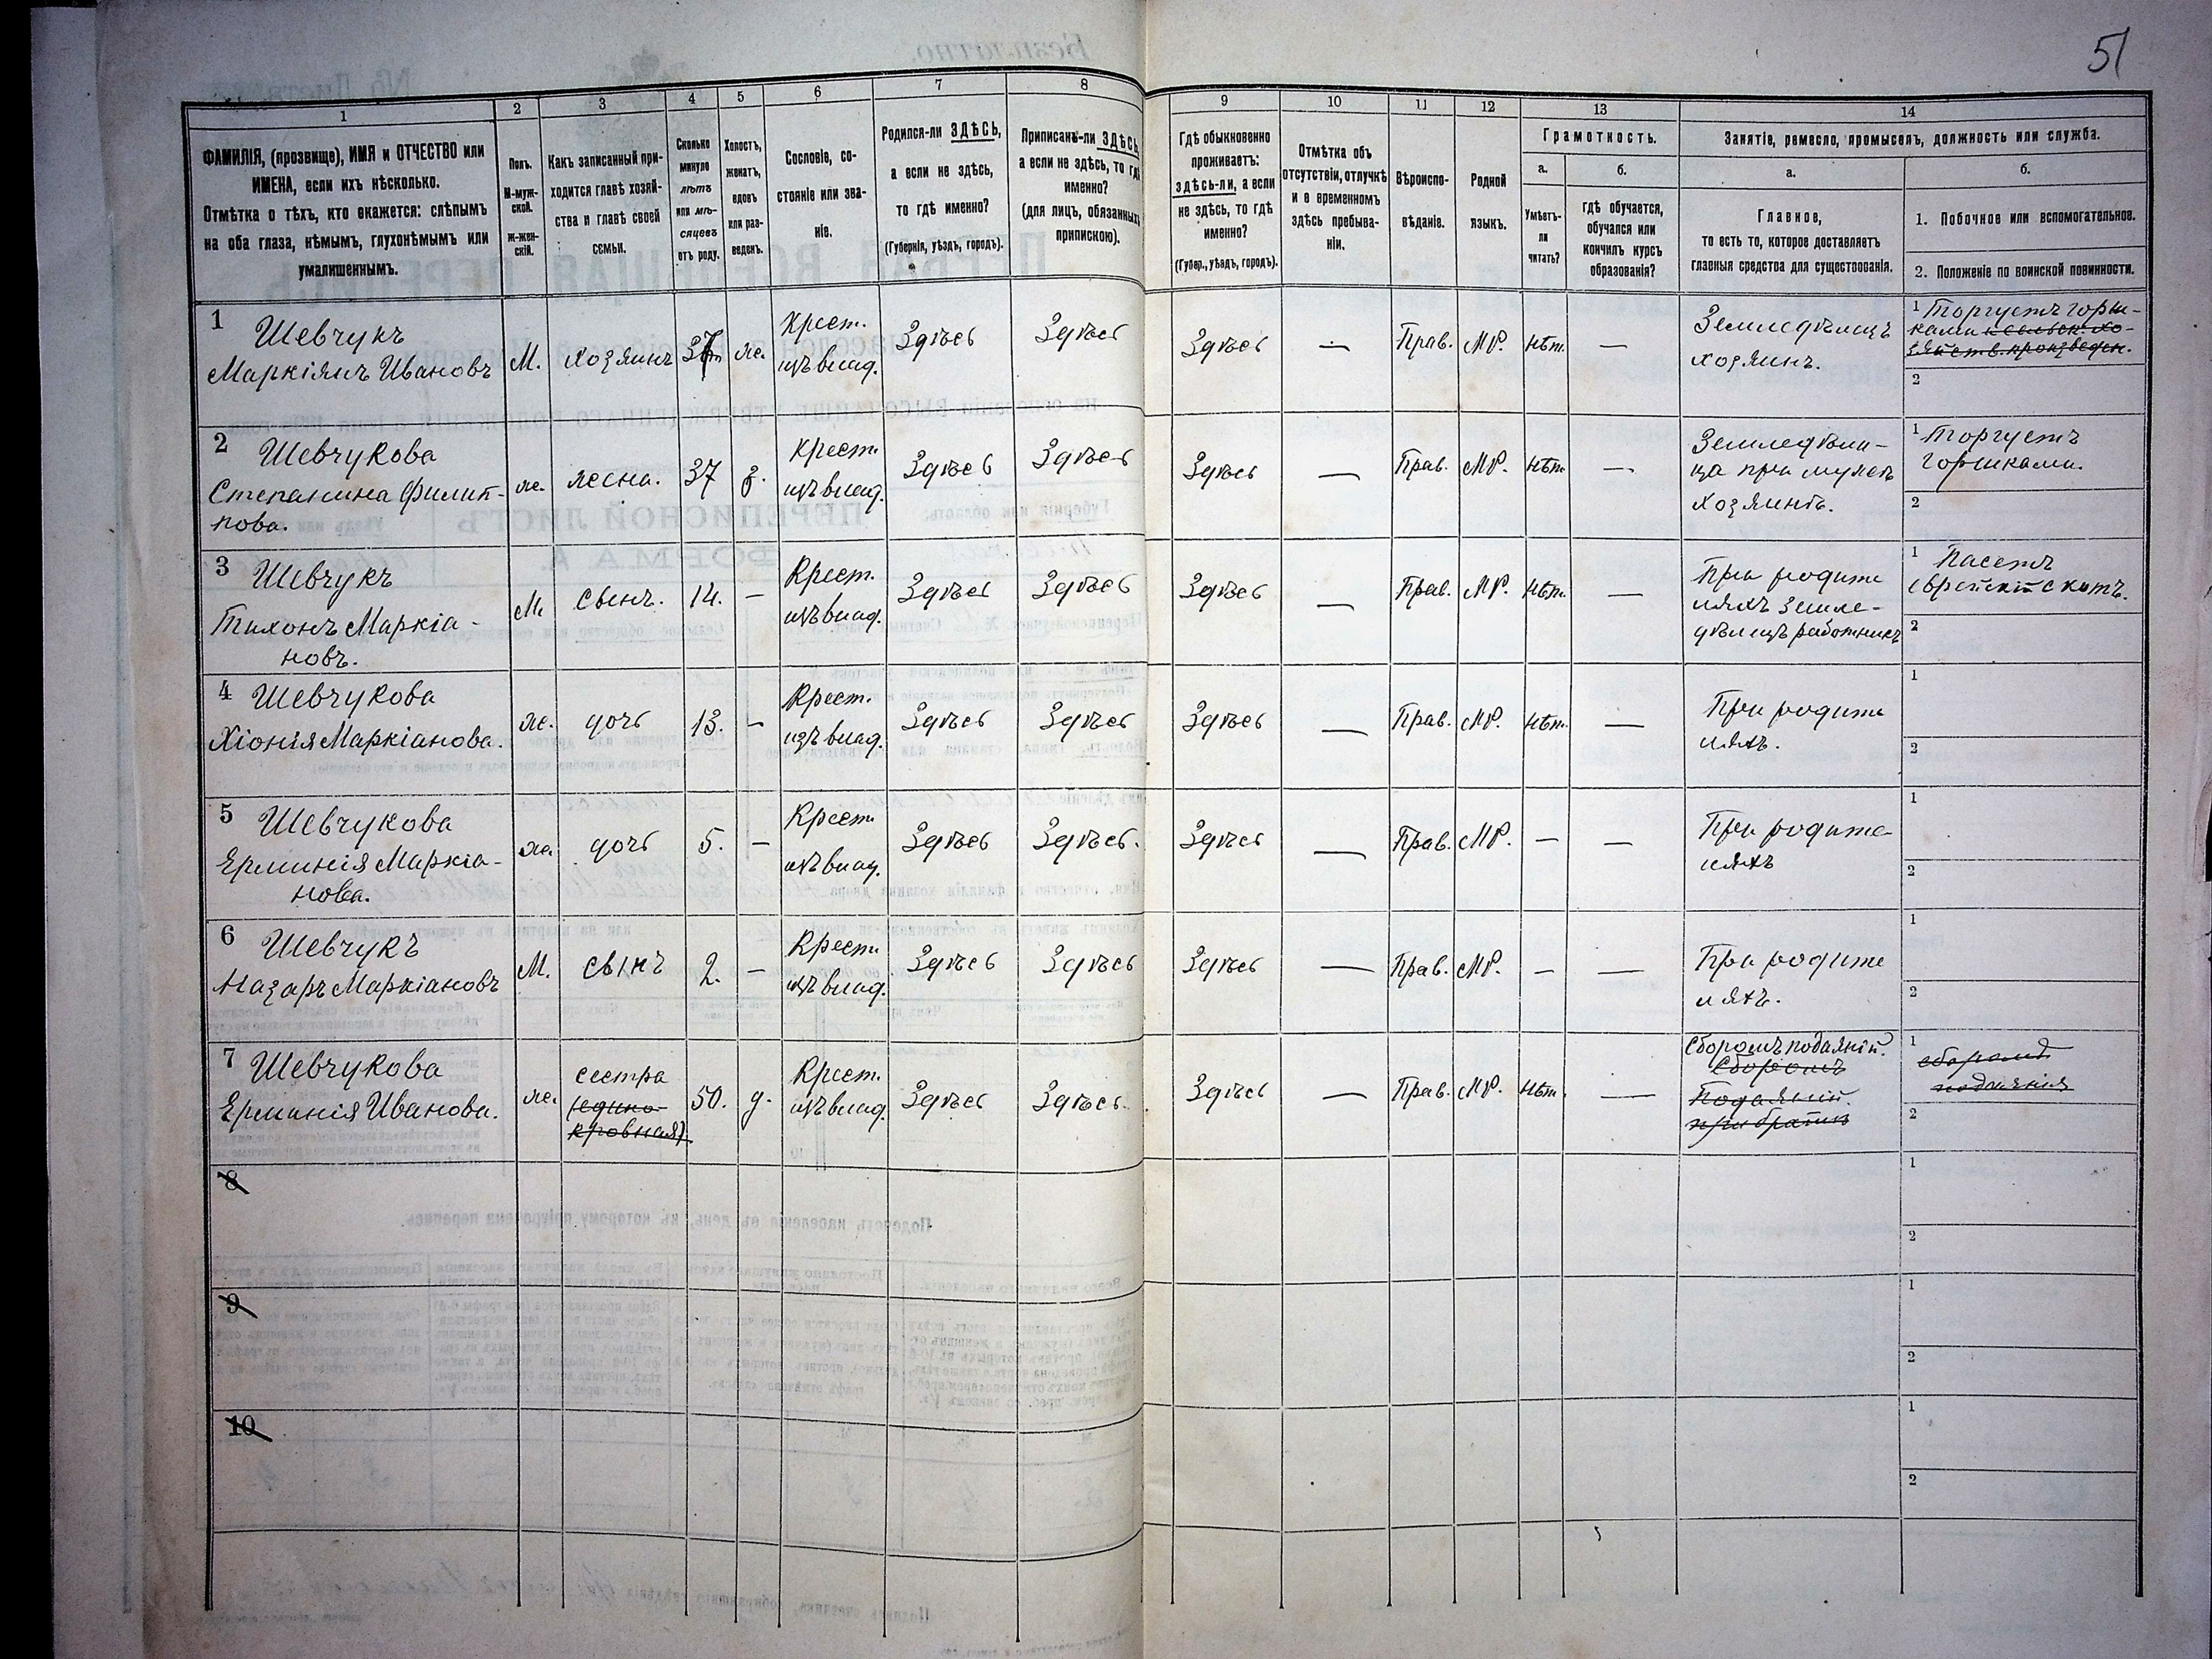 51
1 2 3 4 5 6 7 8 9 10 11 12 13 14
ФАМИЛІЯ, (прозвище), ИМЯ и ОТЧЕСТВО или
ИМЕНА, если ихъ нѣсколько.
Отмѣтка о тѣхъ, кто окажется: слѣпымъ
на оба глаза, нѣмымъ, глухонѣмымъ или
умалишеннымъ.
Полъ.
М-муж-
ской.
Ж-жен-
скій.
Какъ записанный при-
ходится главѣ хозяй-
ства и главѣ своей
семьи.
Сколько
минуло
лѣтъ
или мѣ-
сяцевъ
отъ роду.
Холостъ,
женатъ,
вдовъ
или раз-
веденъ.
Сословіе, со-
стояніе или зва-
ніе.
Родился-ли ЗДѢСЬ,
а если не здѣсь,
то гдѣ именно?
(Губернія, уѣздъ, городъ).
Приписанъ-ли ЗДѢСЬ
а если не здѣсь, то гдѣ
именно?
(для лицъ, обязанныхъ
припискою).
Гдѣ обыкновенно
проживаетъ:
здѣсь-ли, а если
не здѣсь, то гдѣ
именно?
(Губер., уѣздъ, городъ).
Отмѣтка объ
отсутствіи, отлучкѣ
и о временномъ
здѣсь пребыва-
ніи.
Вѣроиспо-
вѣданіе.
Родной
языкъ.
Грамотность.
а.
Умѣетъ-
ли
читать?
б.
гдѣ обучается,
обучался или
кончилъ курсъ
образованія?
Занятіе, ремесло, промыселъ, должность или служба.
а.
Главное,
то есть то, которое доставляетъ
главныя средства для существованія.
б.
1. Побочное или вспомогательное.
2. Положеніе по воинской повинности.
1 Шевчукъ
Маркіянъ Ивановъ
М.
хозяинъ
37
ж.
Крест.
изъ влад.
Здѣсь
Здѣсь
Здѣсь
—
Прав.
МР.
нѣт.
—
Земледѣлецъ
хозяинъ.
1 Торгуетъ горш-
ками и сельск. хо-
зяйств. произведен.
2
2 Шевчукова
Степанина Филип-
пова.
ж.
жена.
37
з.
Крест.
изъ влад.
Здѣсь
Здѣсь
Здѣсь
—
Прав.
МР.
нѣт.
—
Земледѣли-
ца при мужѣ
хозяинѣ.
1 Торгуетъ
горшками.
2
3 Шевчукъ
Тихонъ Маркіа-
новъ.
М.
сынъ.
14.
—
Крест.
изъ влад.
Здѣсь
Здѣсь
Здѣсь
—
Прав.
МР.
нѣт.
—
При родите
ляхъ земле-
дѣлецъ работникъ
1 Пасетъ
еврейскій скотъ.
2
4 Шевчукова
Хіонія Маркіанова.
ж.
дочь
13.
—
Крест.
изъ влад.
Здѣсь
Здѣсь
Здѣсь
—
Прав.
МР.
нѣт.
—
При родите
ляхъ.
1
2
5 Шевчукова
Ерминія Маркіа-
нова.
ж.
дочь
5.
—
Крест.
изъ влад.
Здѣсь
Здѣсь.
Здѣсь
—
Прав.
МР.
—
—
При родите-
ляхъ
1
2
6 Шевчукъ
Назаръ Маркіановъ
М.
сынъ
2.
—
Крест.
изъ влад.
Здѣсь
Здѣсь
Здѣсь
—
Прав.
МР.
—
—
При родите
ляхъ.
1
2
7 Шевчукова
Ерминія Иванова.
ж.
сестра
(едино-
кровная)
50.
д.
Крест.
изъ влад.
Здѣсь
Здѣсь.
Здѣсь
—
Прав.
МР.
нѣт.
—
Сборомъ подаяній.
Сборомъ
Подаяній.
при братѣ
1 сборомъ
подаянія
2
8
1
2
9
1
2
10
1
2